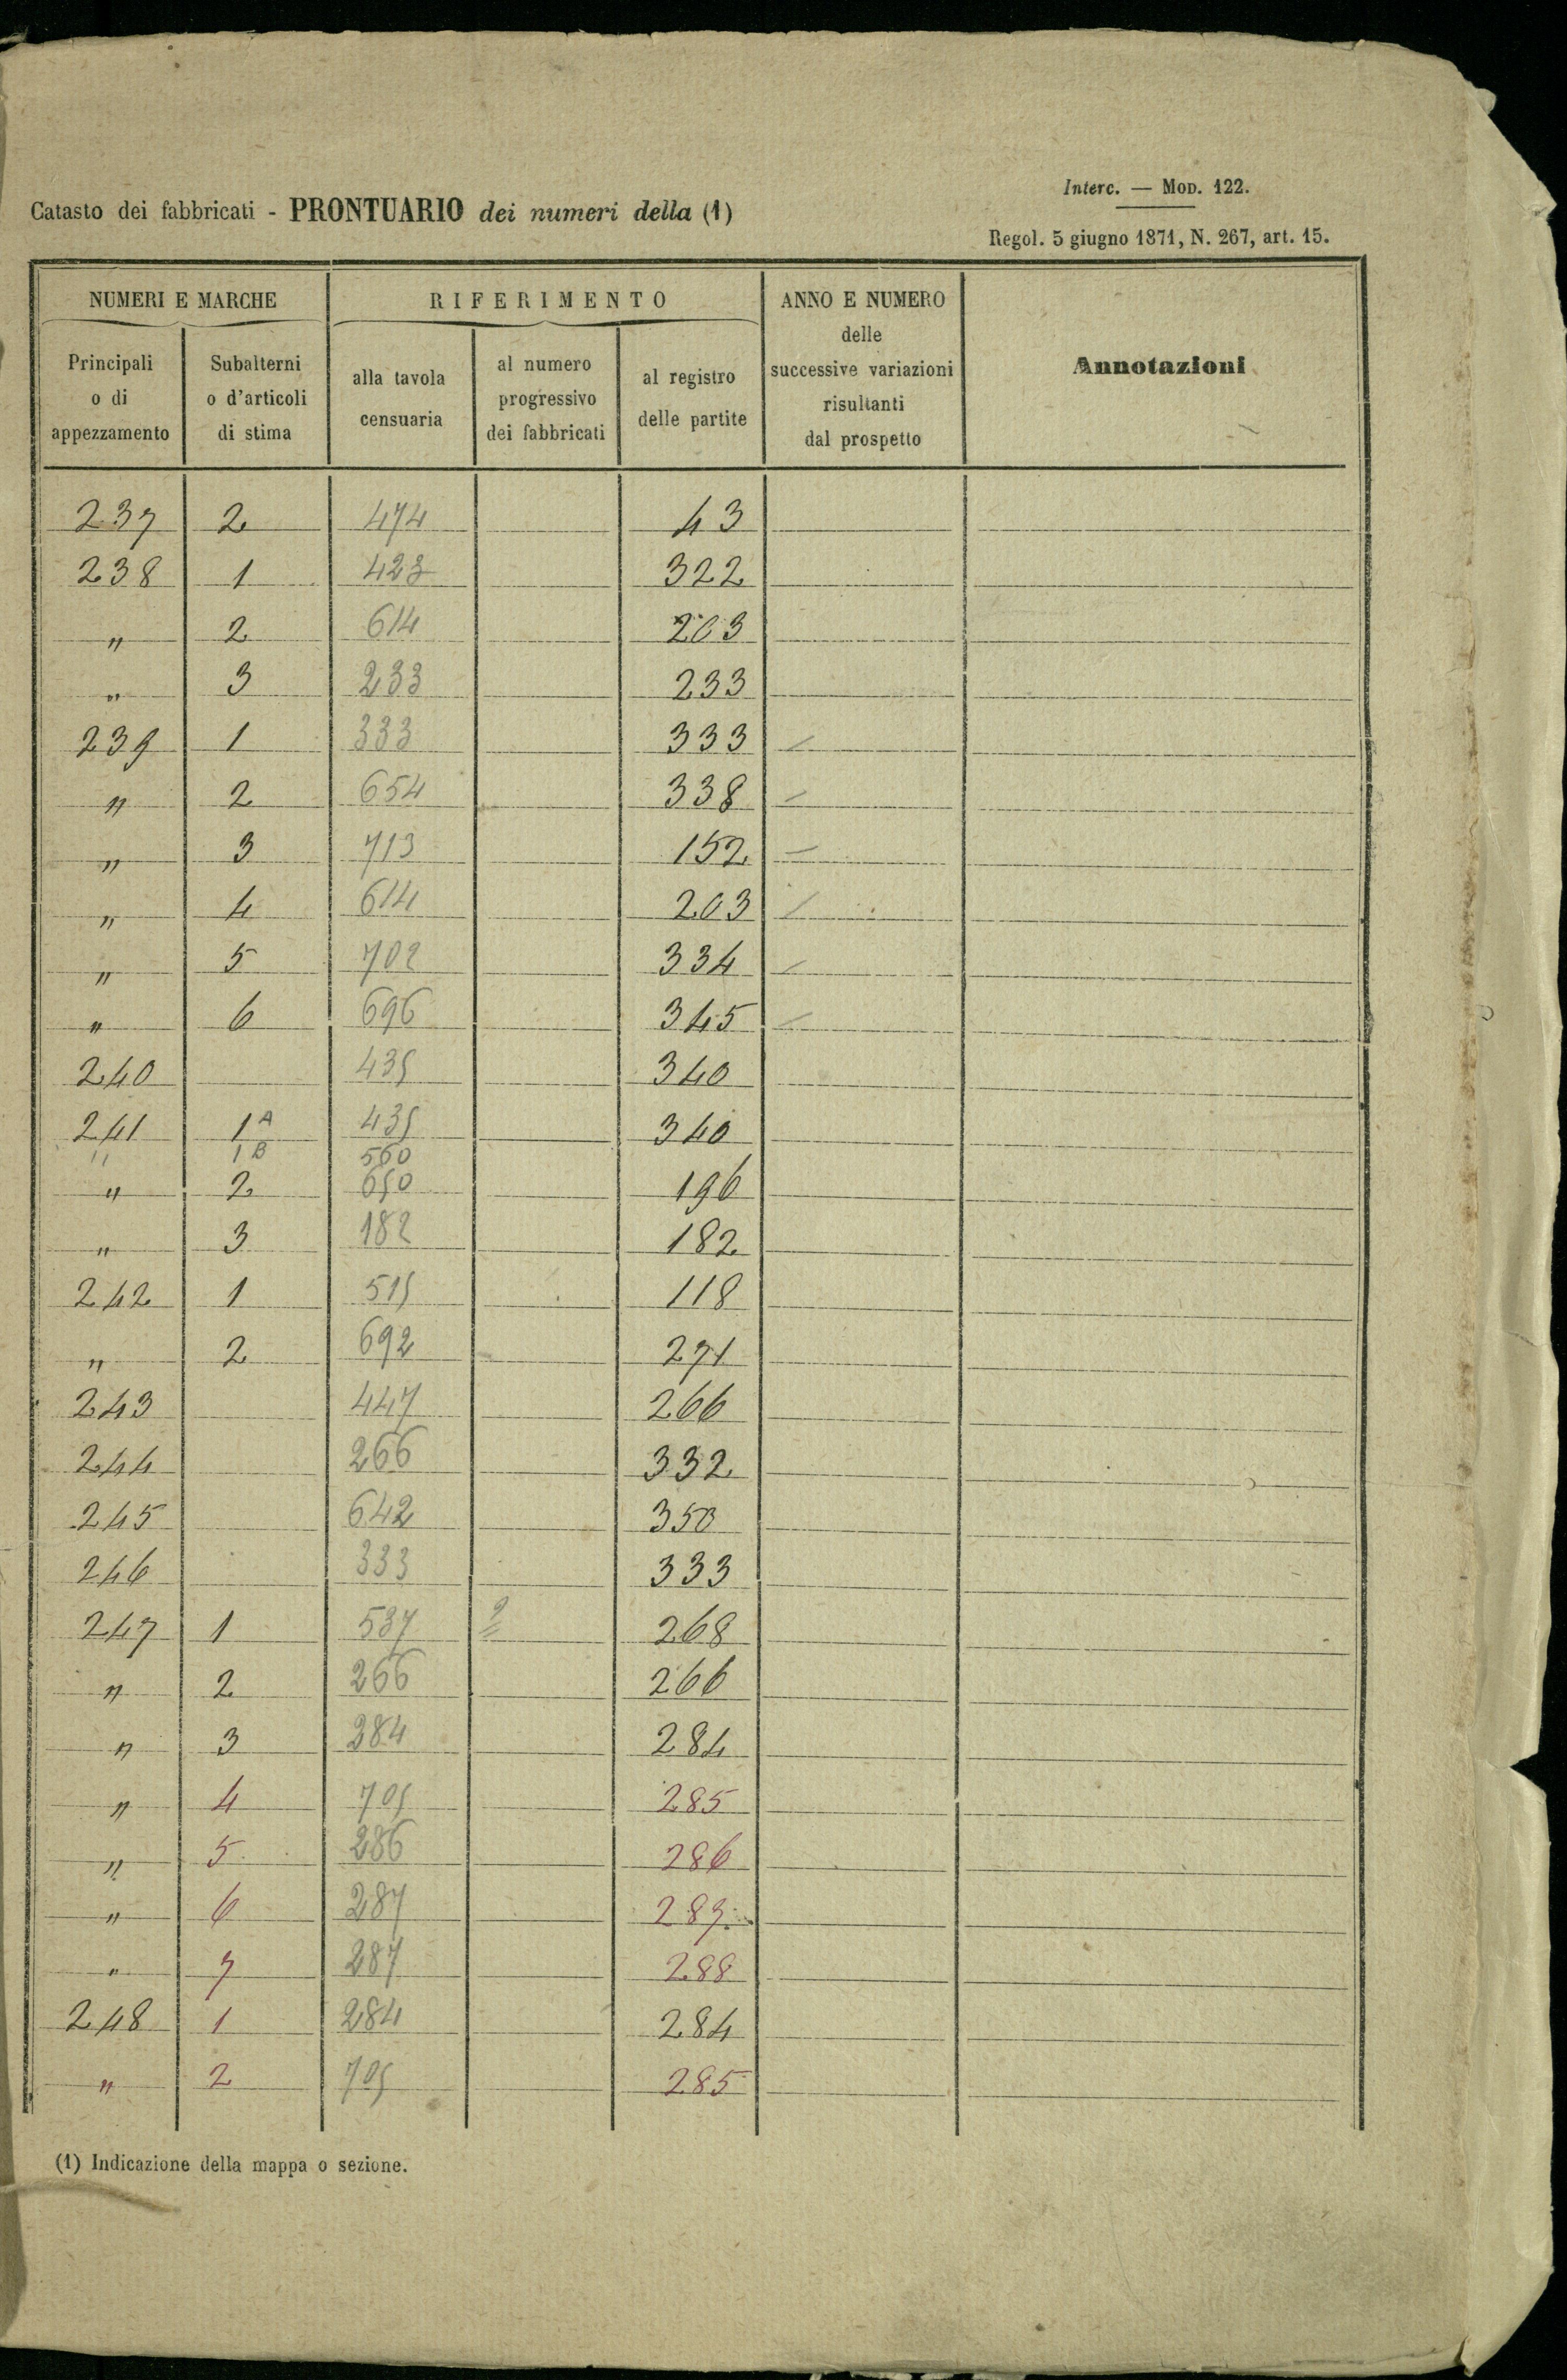 Interc. — Mod. 122.
Catasto dei fabbricati - PRONTUARIO dei numeri della (1)
Regol. 5 giugno 1871, N. 267, art. 15.
NUMERI E MARCHE RIFERIMENTO ANNO E NUMERO delle successive variazioni risultanti dal prospetto Annotazioni
Principali o di appezzamento Subalterni o d'articoli di stima alla tavola censuaria al numero progressivo dei fabbricati al registro delle partite
237 2 474 43
238 1 423 322
" 2 614 203
" 3 233 233
239 1 333 333 /
" 2 654 338 /
" 3 713 152 —
" 4 614 203 /
" 5 702 334 /
" 6 696 345 /
240 435 340
241 1A 435 340
" 1B 560
" 2 650 196
" 3 182 182
242 1 515 118
" 2 692 271
243 447 266
244 266 332
245 642 350
246 333 333
247 1 537 268
" 2 266 266
" 3 284 284
" 4 705 285
" 5 286 286
" 6 287 287
" 7 287 288
248 1 284 284
" 2 705 285
(1) Indicazione della mappa o sezione.